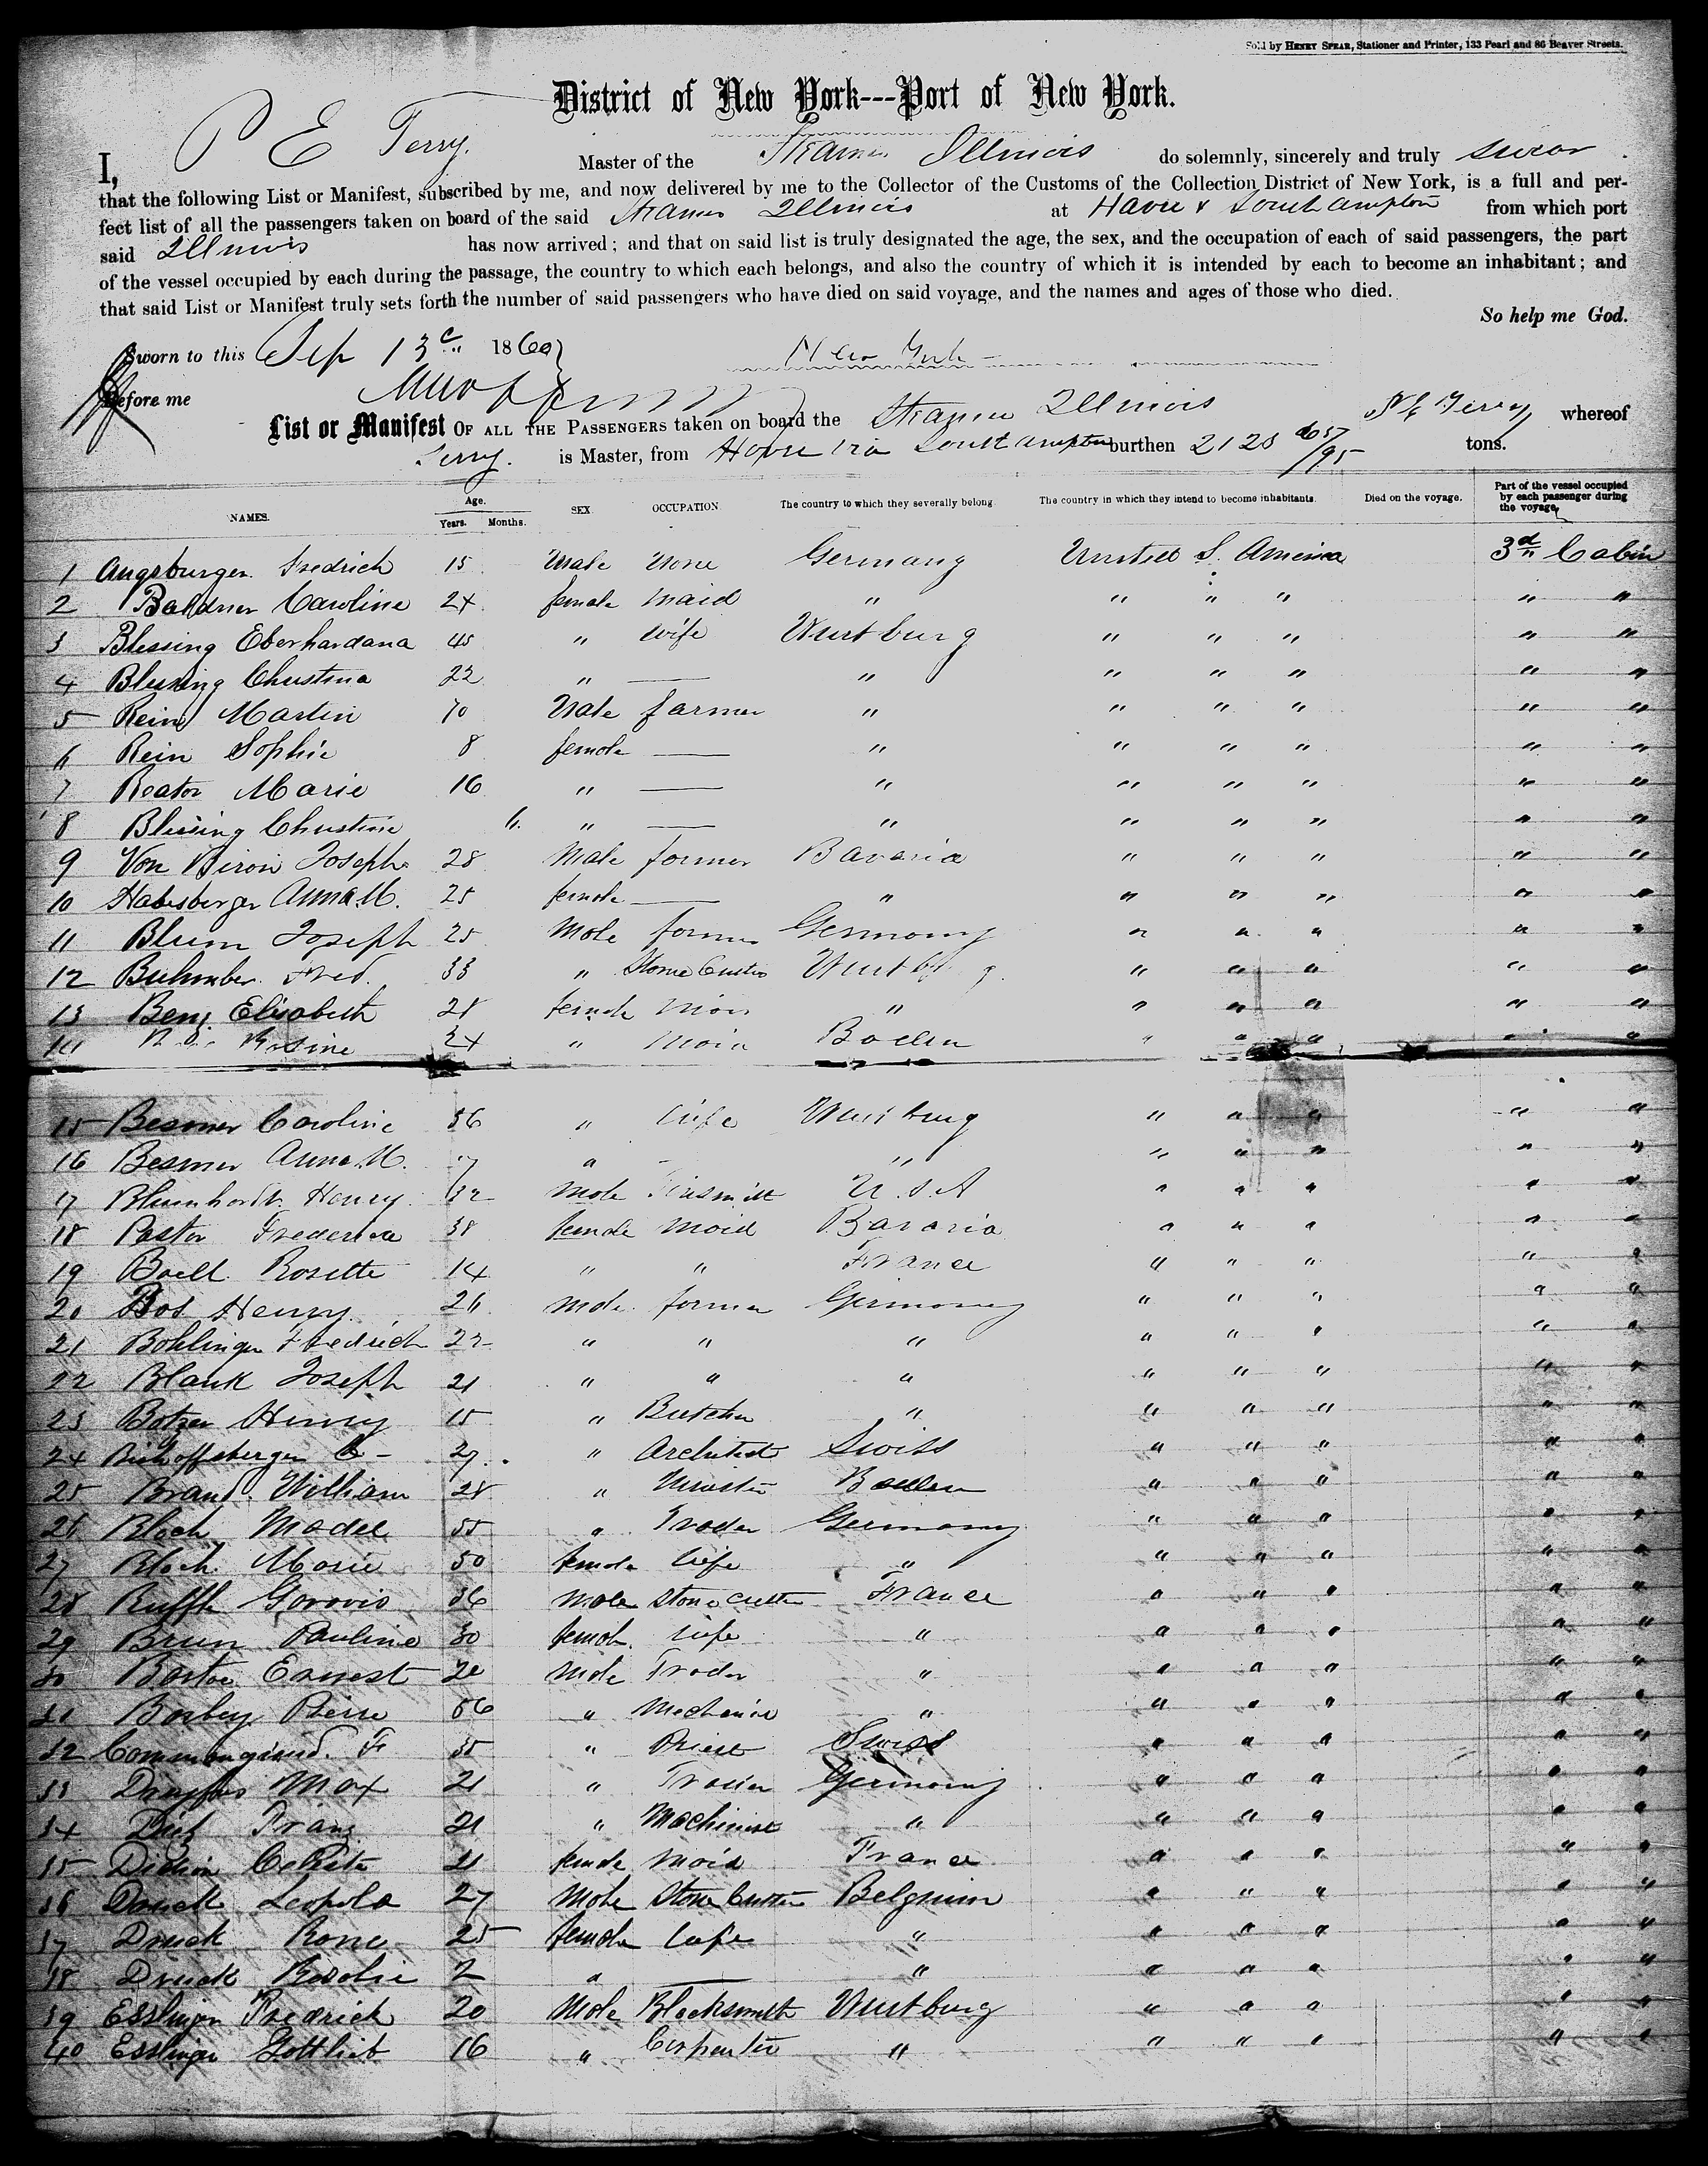 Sold by HENRY SPEAR, Stationer and Printer, 133 Pearl and 86 Beaver Streets.
District of New York---Port of New York.
I, P E Terry. Master of the Steamer Illinois do solemnly, sincerely and truly swear
that the following List or Manifest, subscribed by me, and now delivered by me to the Collector of the Customs of the Collection District of New York, is a full and per-
fect list of all the passengers taken on board of the said Steamer Illinois at Havre & Southampton from which port
said Illinois has now arrived; and that on said list is truly designated the age, the sex, and the occupation of each of said passengers, the part
of the vessel occupied by each during the passage, the country to which each belongs, and also the country of which it is intended by each to become an inhabitant; and
that said List or Manifest truly sets forth the number of said passengers who have died on said voyage, and the names and ages of those who died.
So help me God.
Sworn to this Sep 13 1860 New York
Before me
List or Manifest OF ALL THE PASSENGERS taken on board the Steamer Illinois P E Terry whereof
Terry. is Master, from Havre via Southampton burthen 2123 /95 tons.
NAMES. Age. Years. Months. SEX. OCCUPATION The country to which they severally belong. The country in which they intend to become inhabitants. Died on the voyage. Part of the vessel occupied by each passenger during the voyage.
1 Augsburger Fredrich 15 Male None Germany United S. America 3d Cabin
2 Baldner Caroline 24 female maid " " " " " "
3 Blessing Eberhardana 45 " wife Wurtburg " " " " "
4 Blessing Christina 22 " — " " " " " "
5 Rein Martin 70 Male farmer " " " " " "
6 Rein Sophie 8 female — " " " " " "
7 Beator Marie 16 " — " " " " " "
8 Blessing Christine 6. " — " " " " " "
9 Von Biron Joseph 28 Male farmer Bavaria " " " " "
10 Habesberger Anna M. 25 female — " " " " " "
11 Blum Joseph 25 Male farmer Germany " " " " "
12 Fred. 33 " Stone Cutter " " " " "
13 Benz Elisabeth 28 female " " " " " "
14 Rosine 24 " maid Baden " " " " "
15 Besmer Caroline 36 " wife Wurtburg " " " " "
16 Besmer Anna M. " " " " " " "
17 Blumhardt Henry 32 Male Tinsmith U.S.A " " " " "
18 Pastor Frederica 38 female maid Bavaria " " " " "
19 Boell Rosette 14 " " France " " " " "
20 Bos Henry 26 Male farmer Germany " " " " "
21 Bohlinger Fredrich 22 " " " " " " " "
22 Blank Joseph 21 " " " " " " " "
23 Botzer Henry 15 " Butcher " " " " " "
24 Bischoffsberger C - 27 " Architect Swiss " " " " "
25 Brand William 28 " Minister Baden " " " " "
26 Bloch Madel 55 " Trader Germany " " " " "
27 Bloch Marie 50 female wife " " " " " "
28 Ruffle 36 Male Stone cutter France " " " " "
29 Brun Pauline 30 female wife " " " " " "
30 Ernest 20 Male Trader " " " " " "
31 Borbey Pierre 56 " Mechanic " " " " " "
32 F 35 " Priest Swiss " " " " "
33 Dreyfus Max 21 " Trader Germany " " " " "
34 Diet Franz 21 " Machinist " " " " " "
35 Didion Celeste 21 female maid France " " " " "
36 Druck Leopold 27 Male Stone Cutter Belgium " " " " "
37 Druck Rone 25 female wife " " " " " "
38 Druck Rosalie 2 " — " " " " " "
39 Esslinger Fredrick 20 Male Blacksmith Wurtburg " " " " "
40 Esslinger Gottlieb 16 " Carpenter " " " " " "